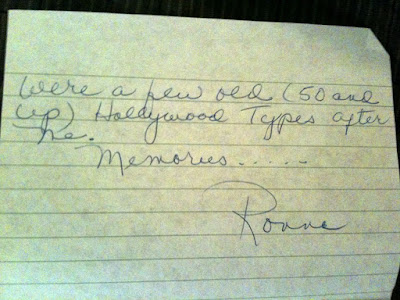 Were a few old (50 and
up) Hollywood Types after
me.
Memories.....
Ronne